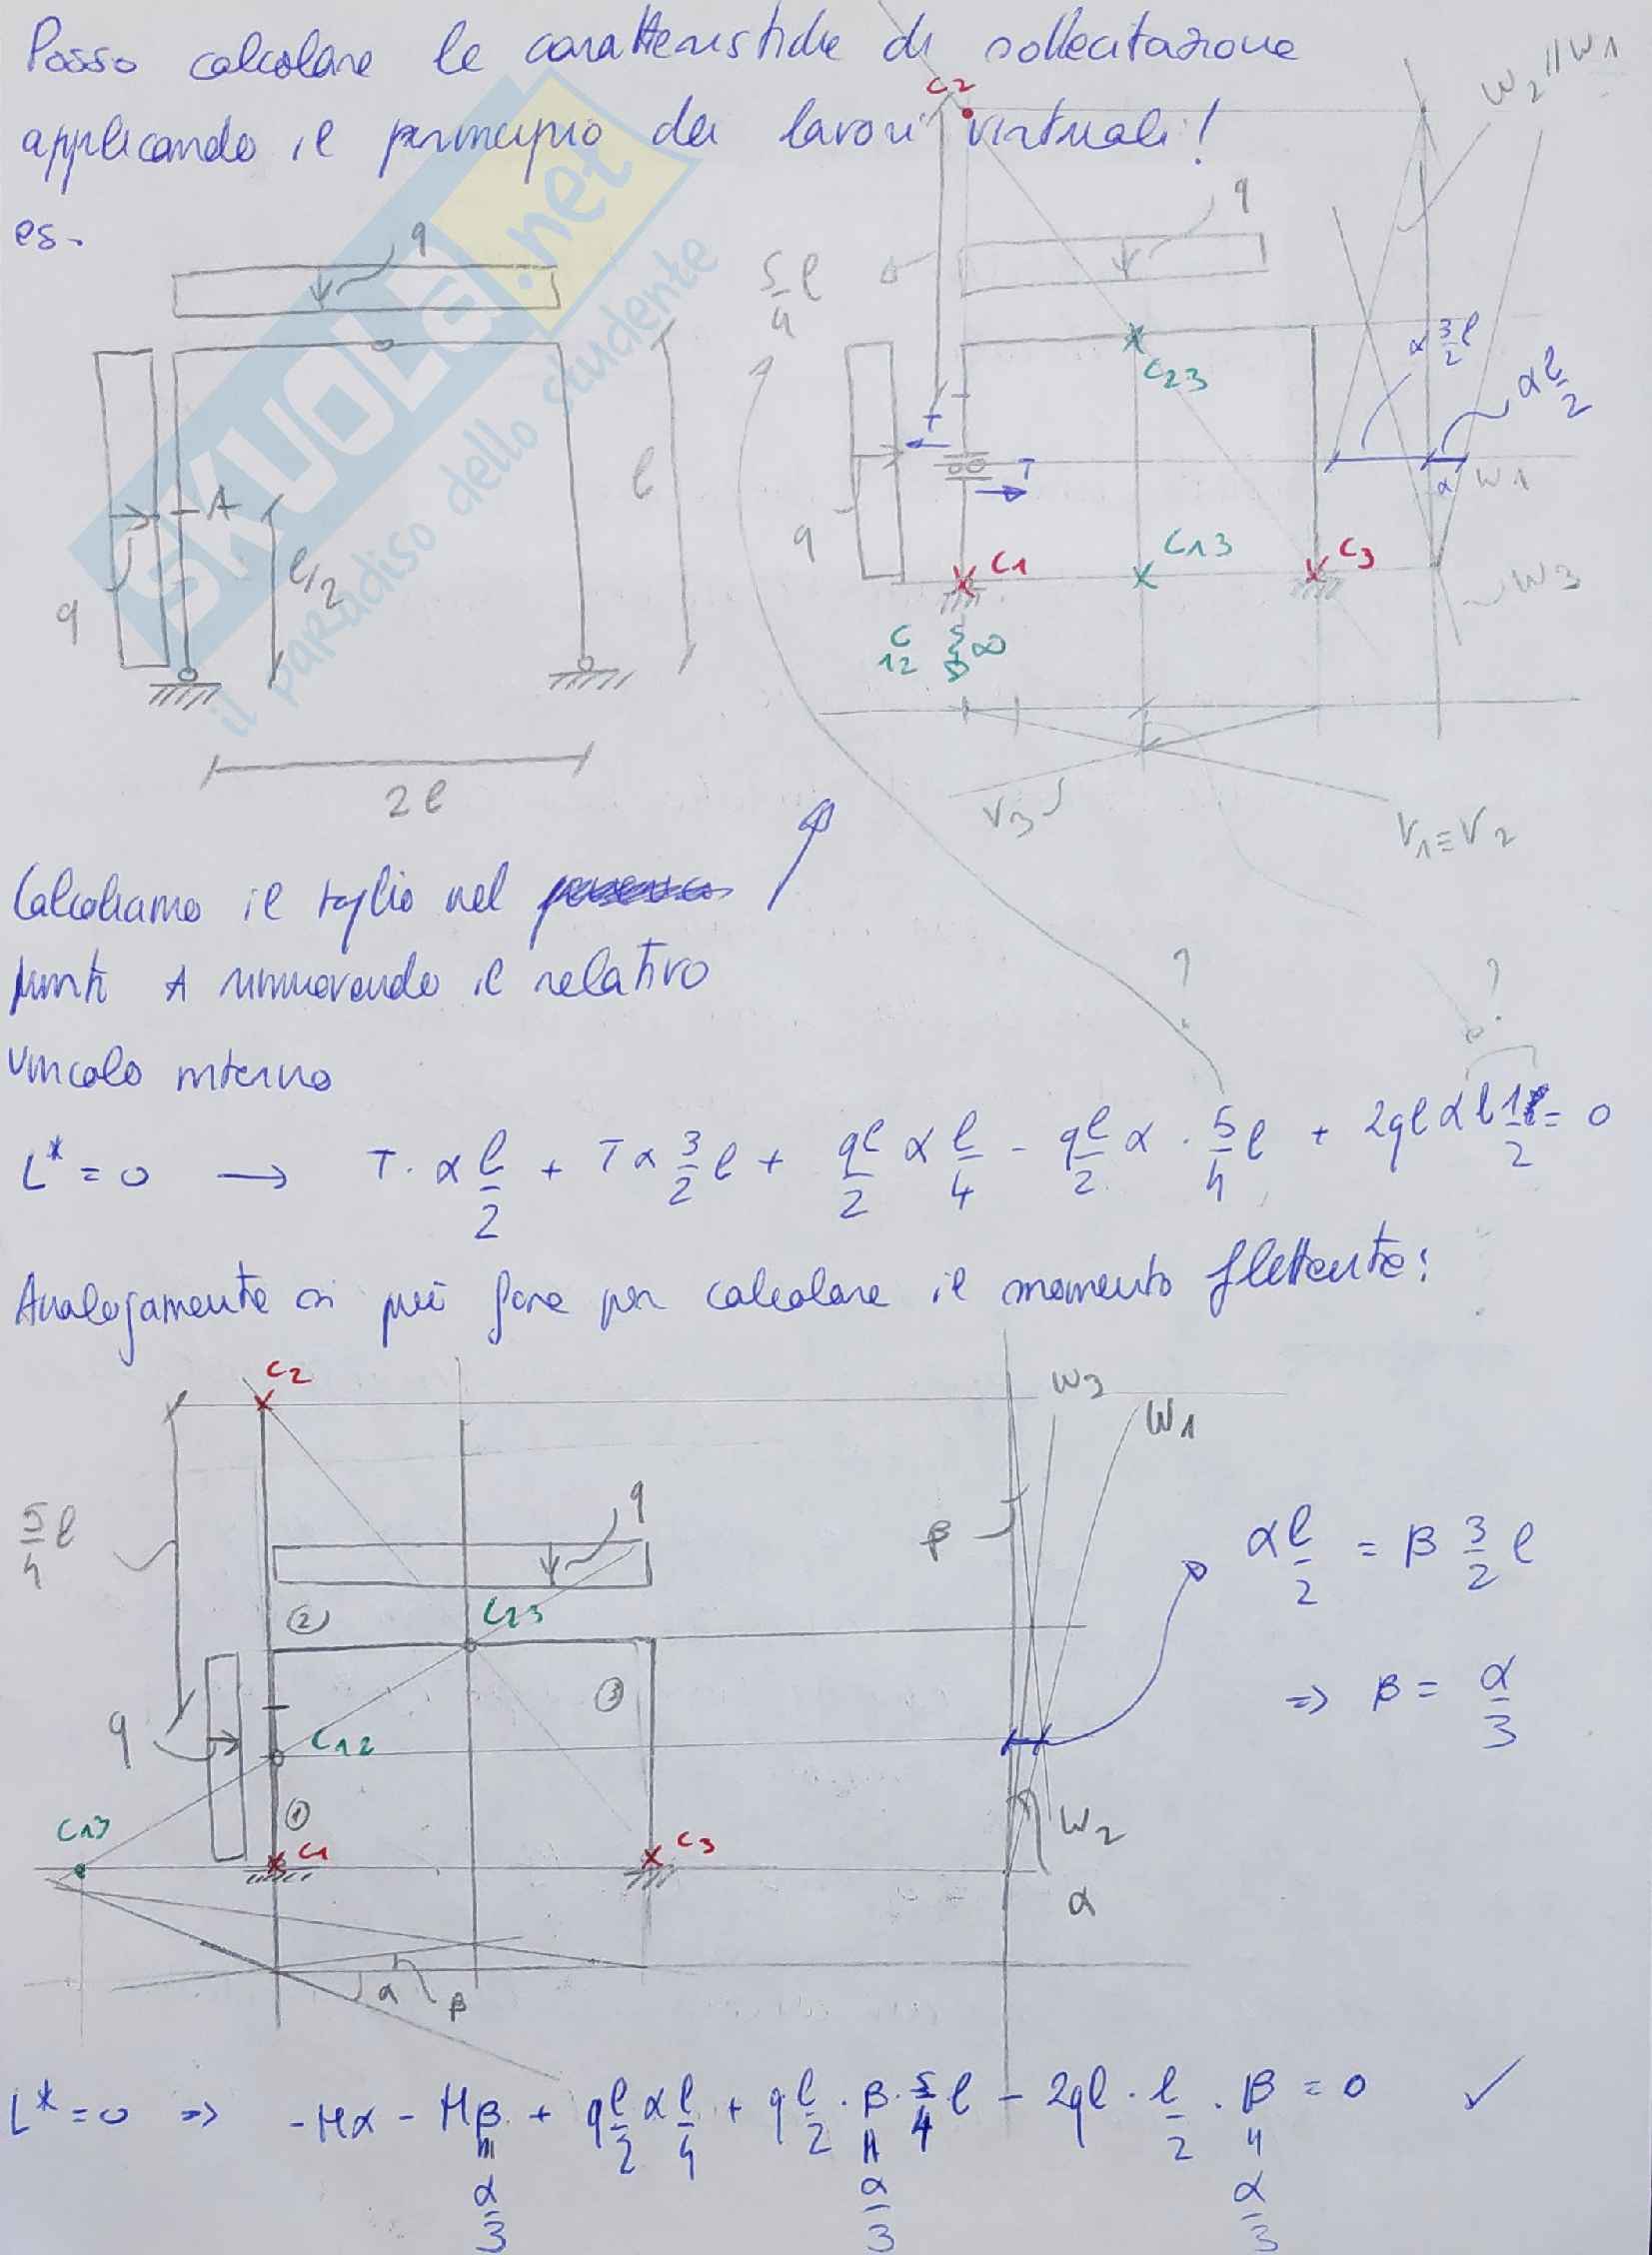 Posso calcolare le caratteristiche di sollecitazione
applicando il principio dei lavori virtuali!
es.
q
A
q
l/2
l
2l
SKUOLA.net
il paradiso dello studente
C2
W2 // W1
q
5/4 l
C23
α 3/2 l
α l/2
T
T
q
α
W1
C1
C13
C3
W3
C12 ∞
V3
V1≡V2
Calcoliamo il taglio nel
punto A rimuovendo il relativo
vincolo interno
?
?
L* = 0 → T · α l/2 + Tα 3/2 l + ql/2 α l/4 - ql/2 α · 5/4 l + 2ql α l 1/2 = 0
Analogamente si può fare per calcolare il momento flettente:
C2
W3
W1
5/4 l
q
β
α l/2 = β 3/2 l
C23
2
3
⇒ β = α/3
q
C12
1
C13
C1
C3
W2
α
α
β
L* = 0 ⇒ -Mα - Mβ + q l/2 α l/4 + q l/2 · β · 5/4 l - 2ql · l/2 · β = 0 ✓
α/3
α/3
α/3